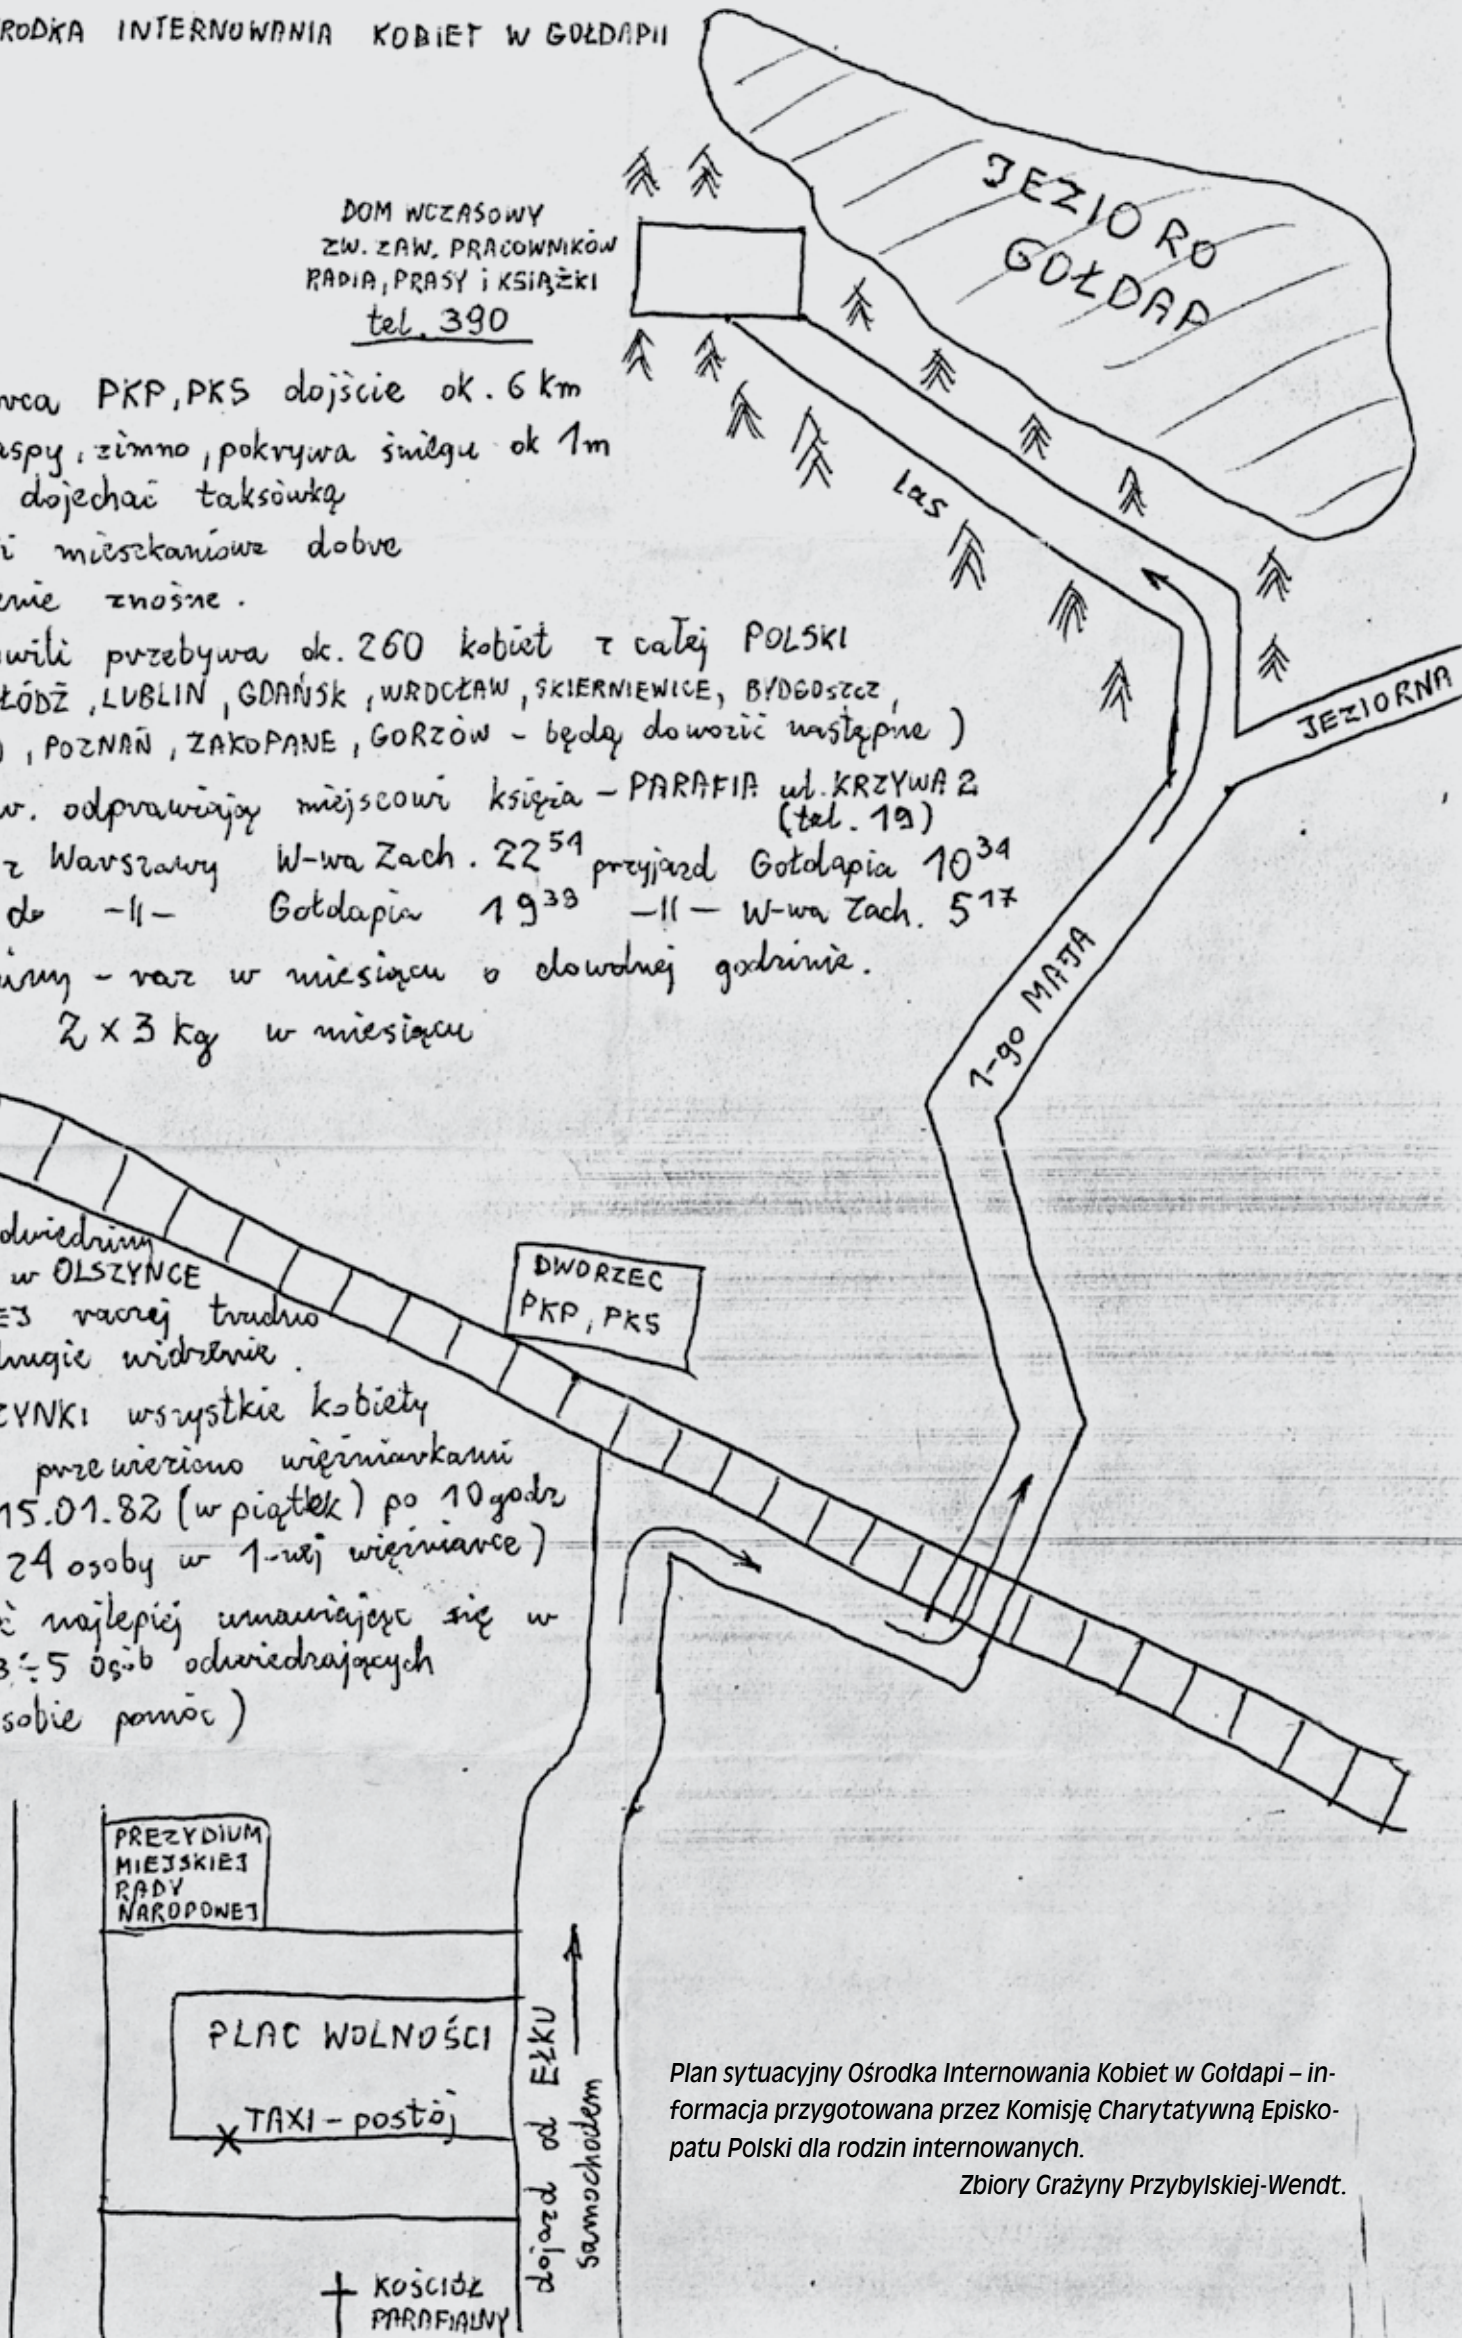 RODKA INTERNOWANIA KOBIET W GOŁDAPII
JEZIORO
GOŁDAP
DOM WCZASOWY
ZW. ZAW. PRACOWNIKÓW
RADIA, PRASY i KSIĄŻKI
tel. 390
wca PKP, PKS dojście ok. 6 km
aspy, zimno, pokrywa śniegu ok 1m
dojechać taksówką
i mieszkaniowe dobre
enie znośne.
las
wili przebywa ok. 260 kobiet z całej POLSKI
ŁÓDŹ, LUBLIN, GDAŃSK, WROCŁAW, SKIERNIEWICE, BYDGOSZCZ,
, POZNAŃ, ZAKOPANE, GORZÓW - będą dowozić następne)
JEZIORNA
w. odprawiają miejscowi księża - PARAFIA ul. KRZYWA 2
(tel. 19)
z Warszawy W-wa Zach. 22 51 przyjazd Gołdapia 10 34
do -II- Gołdapia 19 38 -II- W-wa Zach. 5 17
iny - raz w miesiącu o dowolnej godzinie.
2 x 3 kg w miesiącu
1-go MAJA
dwiedziny
w OLSZYNCE
EJ raczej trudno
rugie widzenie.
DWORZEC
PKP, PKS
ZYNKI wszystkie kobiety
przewieziono więźniarkami
15.01.82 (w piątek) po 10 godz
24 osoby w 1-nej więźniarce)
ć najlepiej umawiając się w
3÷5 osób odwiedzających
sobie pomóc)
PREZYDIUM
MIEJSKIEJ
RADY
NARODOWEJ
PLAC WOLNOŚCI
TAXI - postój
dojazd od EŁKU
samochodem
KOŚCIÓŁ
PARAFIALNY
Plan sytuacyjny Ośrodka Internowania Kobiet w Gołdapi – in-
formacja przygotowana przez Komisję Charytatywną Episko-
patu Polski dla rodzin internowanych.
Zbiory Grażyny Przybylskiej-Wendt.